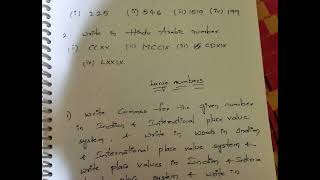 (i) 225 (ii) 546 (iii) 1519 (iv) 199
2. write in Hindu Arabic number.
(i) CCXV (ii) MCCIX (iii) CDXIX
(iv) LXXIX.
Large numbers
1) Write Commas for the given number
in Indian & International place value
system. & write in words in Indian
& International place value system &
write place values in Indian &
place system & write in